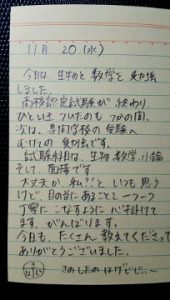 11月 20(水)
今日は、生物と数学を勉強
しました。
高検認定試験が終わり
ひといきついたのもつかの間、
次は、専門学校の受験へ
むけての勉強です。
試験科目は、生物、数学、小論
そして、面接です
大丈夫か、私!?といつも思う
けど、目の前にあることを一つ一つ
丁寧にこなすように心掛けて
ます。がんばります。
今日も、たくさん教えてくださって
ありがとうございました。